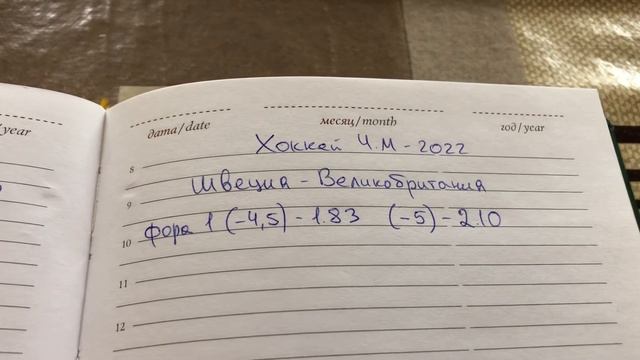 /year
дата/date
месяц/month
год/year
8
Хоккей Ч.М - 2022
9
Швеция - Великобритания
10
фора 1 (-4,5) - 1.83 (-5) - 2.10
11
12